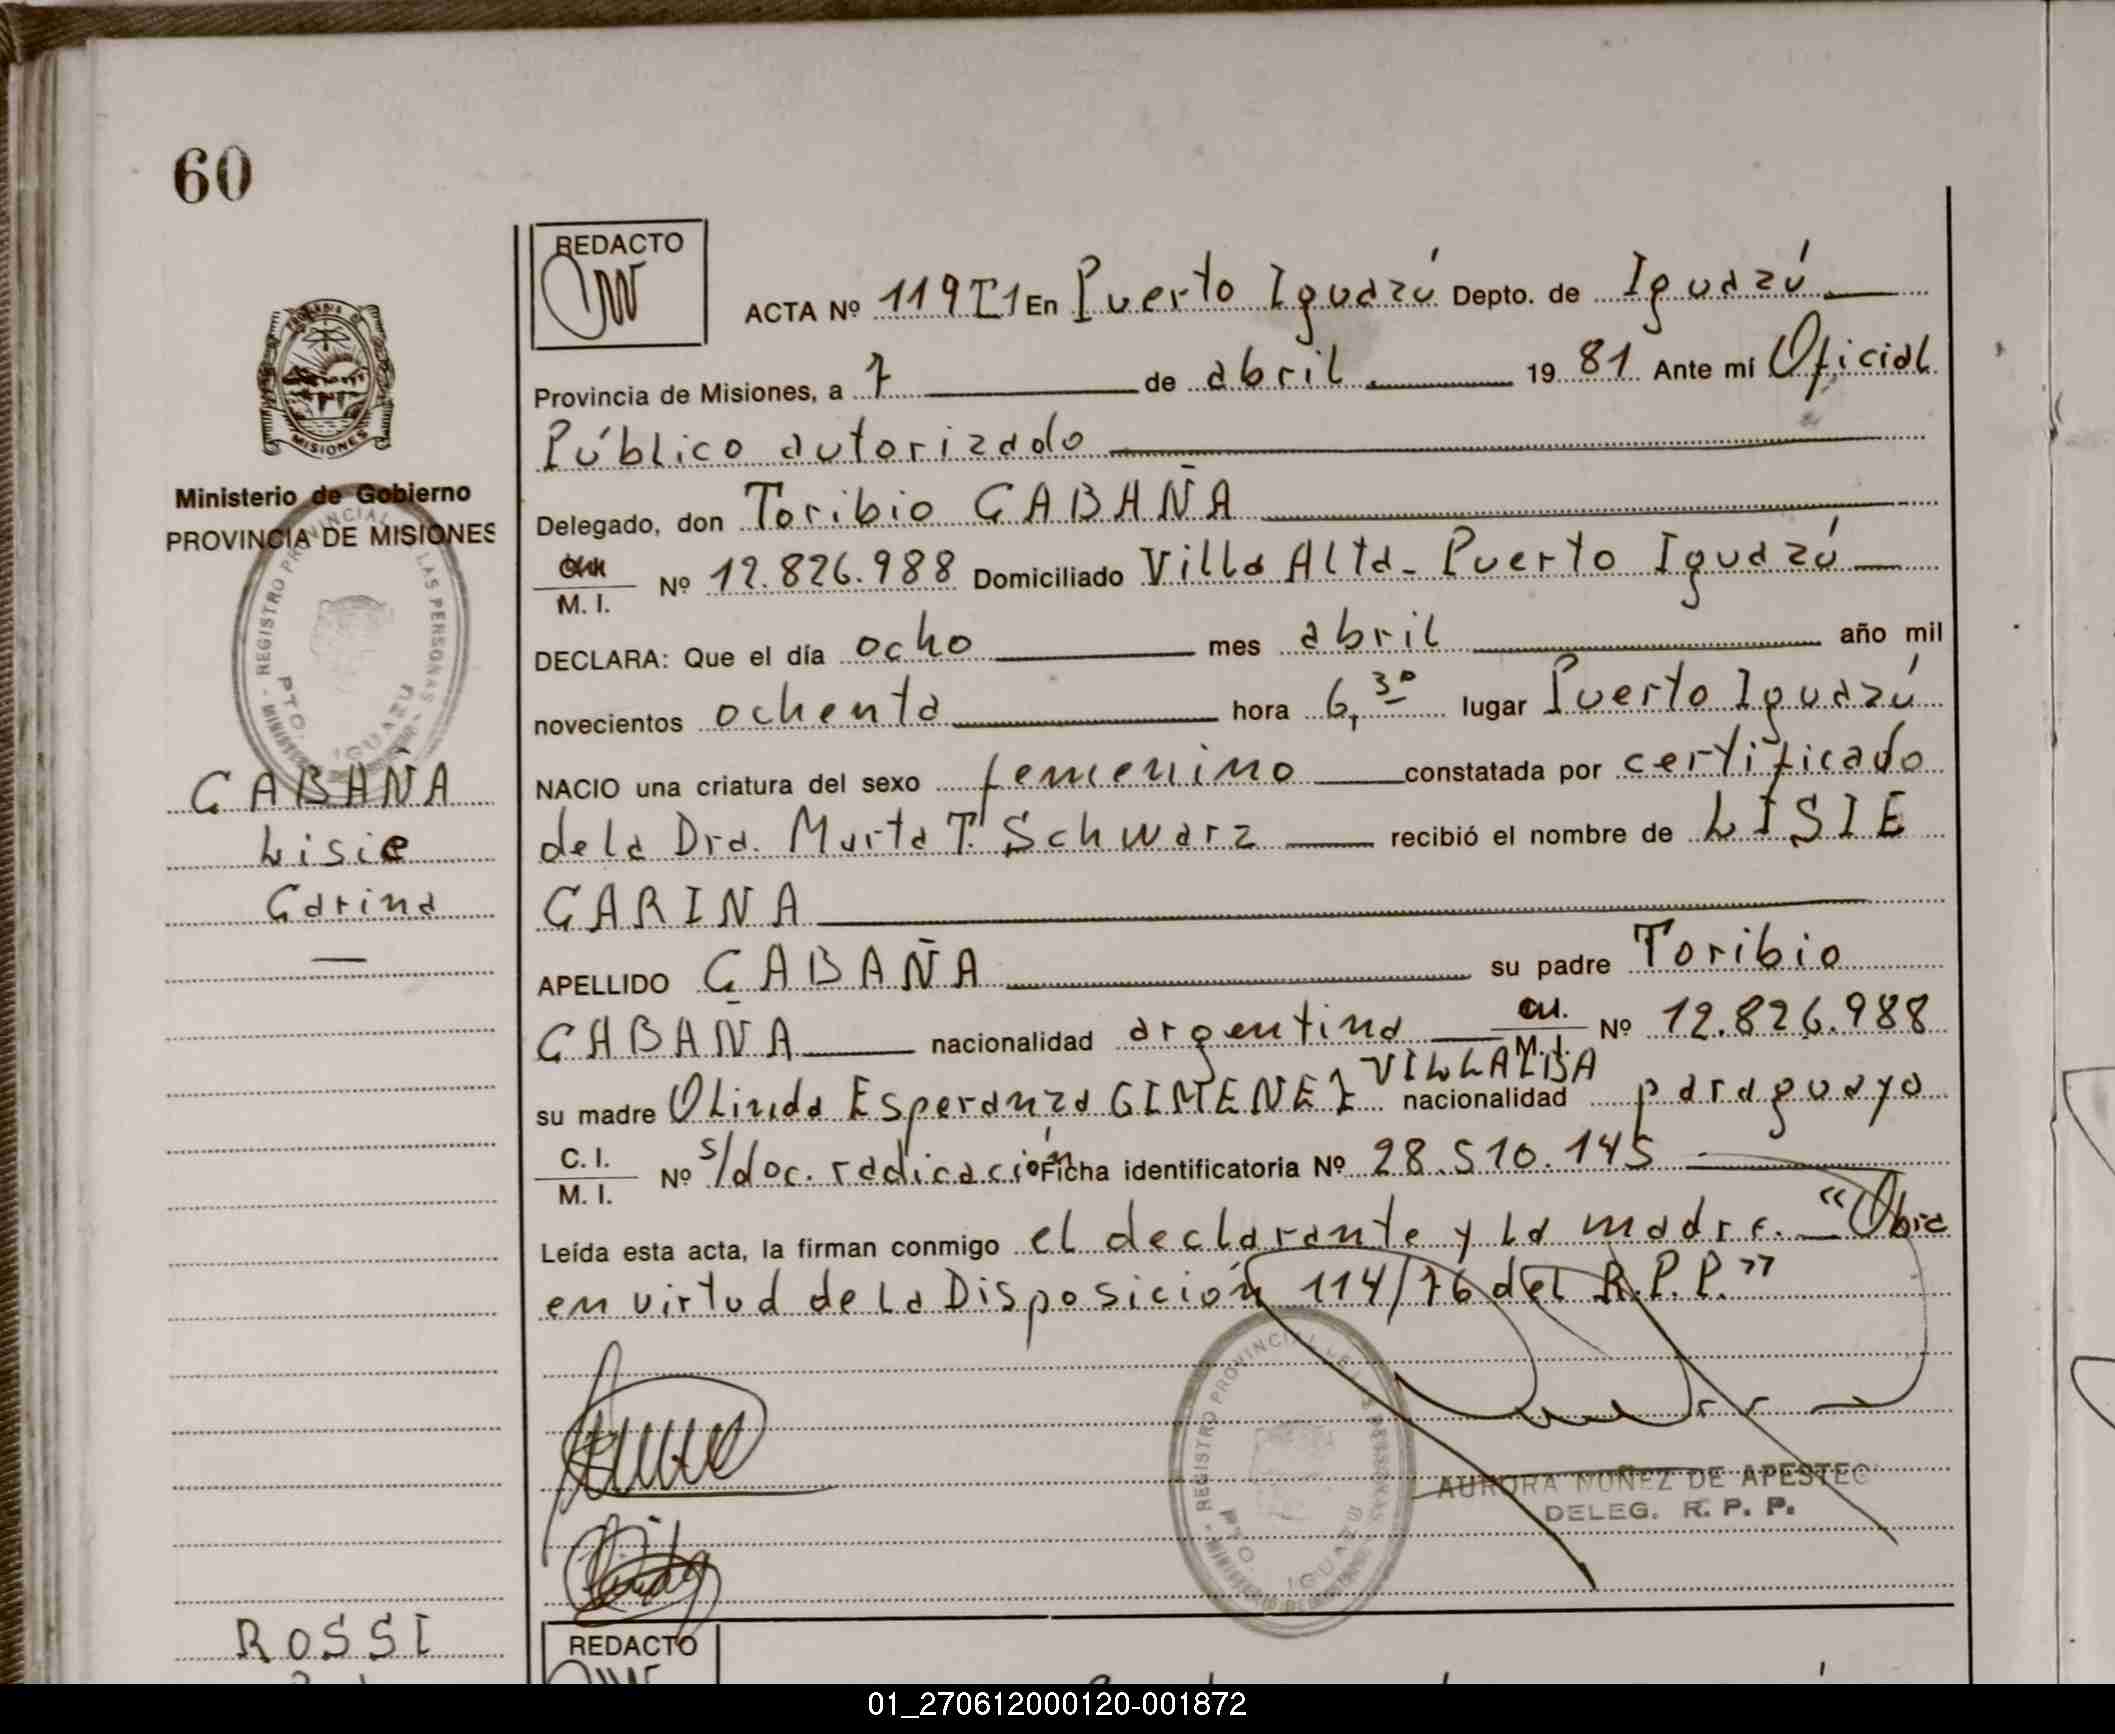 60
REDACTO
ACTA Nº 119T1 En Puerto Iguazú Depto. de Iguazú
Provincia de Misiones, a 7 de abril 19 81 Ante mí Oficial
Público autorizado
Delegado, don Toribio CABAÑA
M. I. Nº 12.826.988 Domiciliado Villa Alta - Puerto Iguazú
DECLARA: Que el día ocho mes abril año mil
novecientos ochenta hora 6,30 lugar Puerto Iguazú
NACIO una criatura del sexo femenino constatada por certificado
de la Dra. Marta T. Schwarz recibió el nombre de LISIE
CARINA
APELLIDO CABAÑA su padre Toribio
CABAÑA nacionalidad argentina M. I. Nº 12.826.988
su madre Olinda Esperanza GIMENEZ VILLALBA nacionalidad paraguaya
C. I. M. I. Nº s/doc. radicación Ficha identificatoria Nº 28.510.145
Leída esta acta, la firman conmigo el declarante y la madre. — "Obra
en virtud de la Disposición 114/76 del R.P.P."
AURORA NUÑEZ DE APESTEG
DELEG. R. P. P.
REGISTRO PROVINCIAL DE LAS PERSONAS
PTO. IGUAZU
MISIONES
Ministerio de Gobierno
PROVINCIA DE MISIONES
REGISTRO PROVINCIAL DE LAS PERSONAS
PTO. IGUAZU
CABAÑA
Lisie
Carina
—
ROSSI
REDACTO
01_270612000120-001872